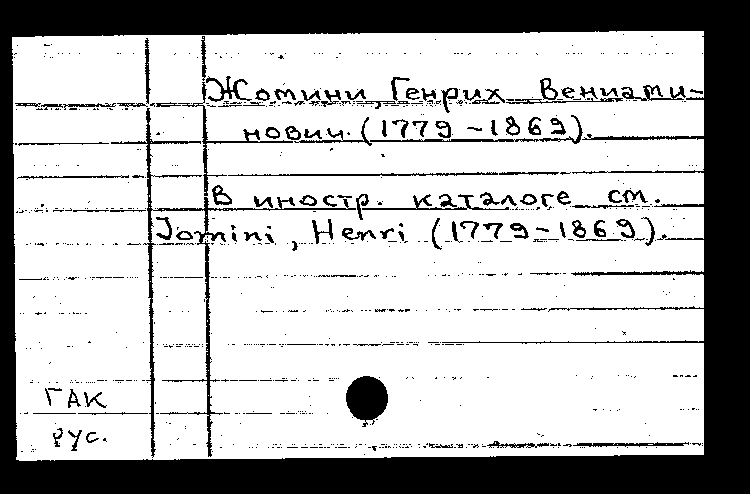 Жомини, Генрих Вениами-
нович. (1779-1869).
В иностр. каталоге см.
Jomini, Henri (1779-1869).
ГАК
рус.